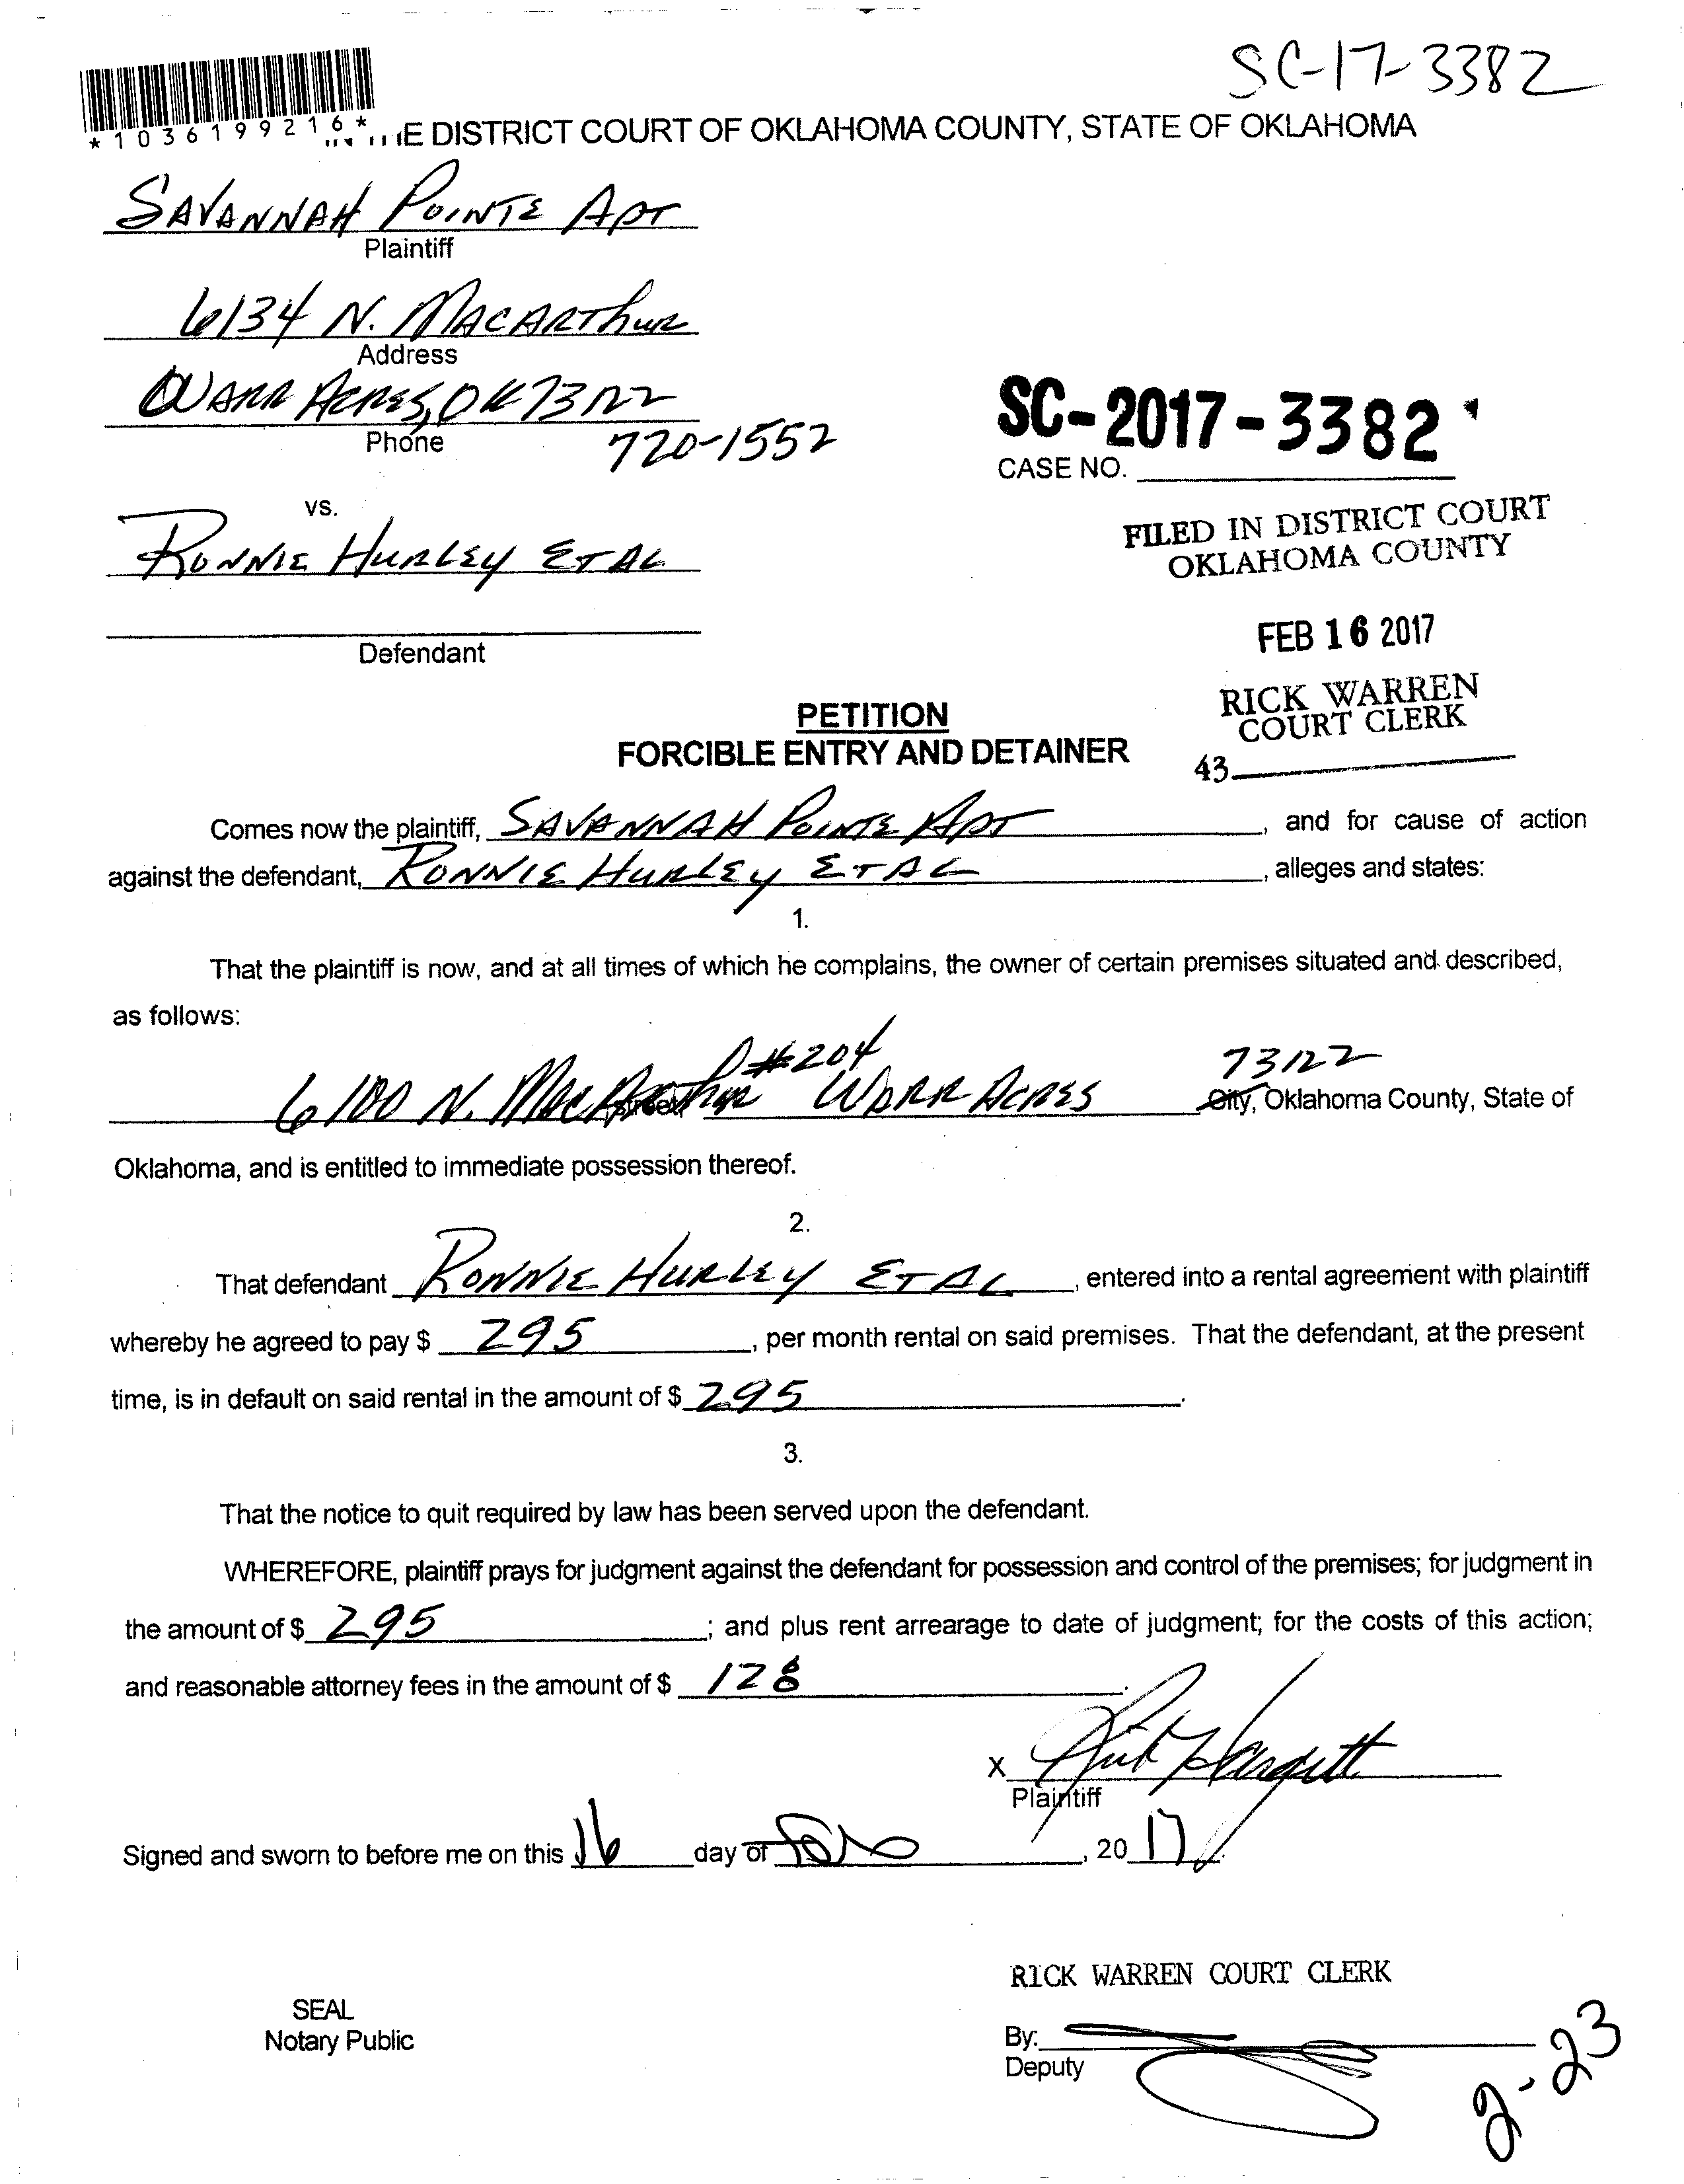 SC-17-3382
*1036199216*
E DISTRICT COURT OF OKLAHOMA COUNTY, STATE OF OKLAHOMA
SAVANNAH POINTE APT
Plaintiff
6134 N. MACARTHUR
Address
WARR ACRES, OK 73122
Phone 720-1552
SC-2017-3382
CASE NO.
vs.
RONNIE HURLEY ET AL
Defendant
FILED IN DISTRICT COURT
OKLAHOMA COUNTY
FEB 16 2017
RICK WARREN
COURT CLERK
43
PETITION
FORCIBLE ENTRY AND DETAINER
Comes now the plaintiff, SAVANNAH POINTE APT, and for cause of action
against the defendant, RONNIE HURLEY ET AL, alleges and states:
1.
That the plaintiff is now, and at all times of which he complains, the owner of certain premises situated and described,
as follows:
6100 N. MacArthur #204 WARR ACRES 73122
(Street) City, Oklahoma County, State of
Oklahoma, and is entitled to immediate possession thereof.
2.
That defendant RONNIE HURLEY ET AL, entered into a rental agreement with plaintiff
whereby he agreed to pay $ 295, per month rental on said premises. That the defendant, at the present
time, is in default on said rental in the amount of $ 295.
3.
That the notice to quit required by law has been served upon the defendant.
WHEREFORE, plaintiff prays for judgment against the defendant for possession and control of the premises; for judgment in
the amount of $ 295; and plus rent arrearage to date of judgment; for the costs of this action;
and reasonable attorney fees in the amount of $ 128.
X
Plaintiff
Signed and sworn to before me on this 16 day of Feb, 2017.
RICK WARREN COURT CLERK
SEAL
Notary Public
By:
Deputy
2-23